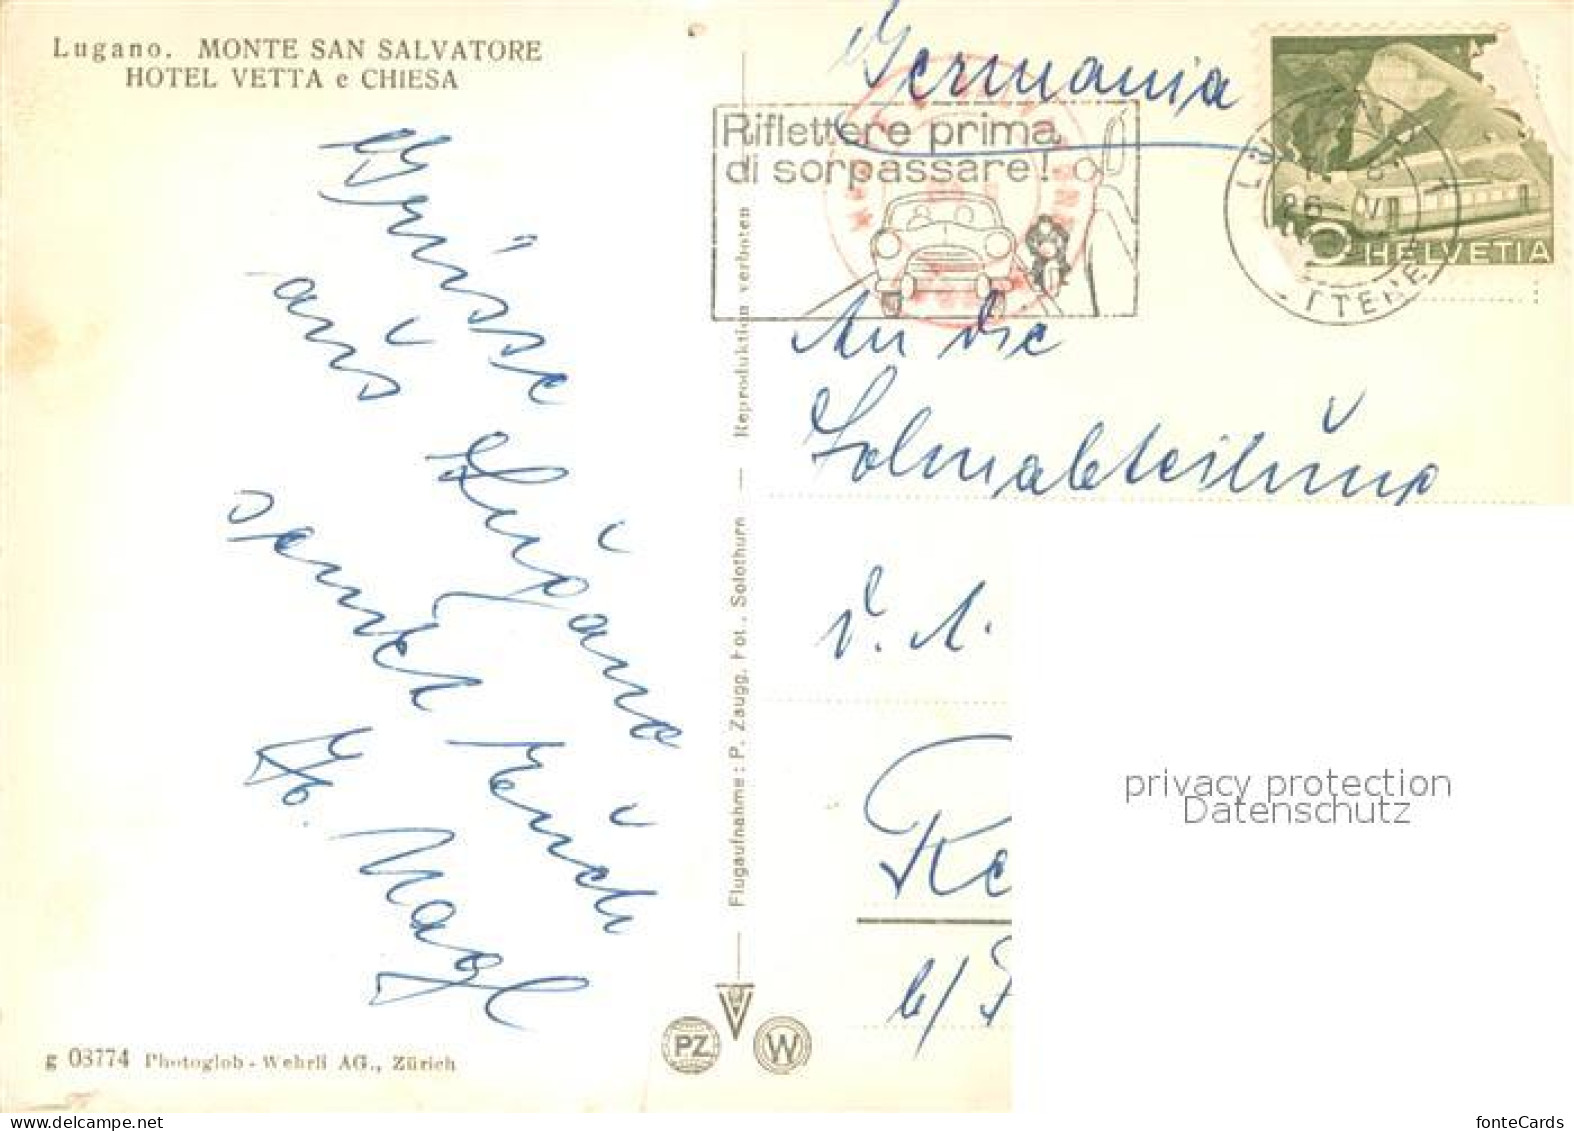 Lugano. MONTE SAN SALVATORE
HOTEL VETTA e CHIESA
Grüsse
aus
Lugano
sendet Euch
Hb. Nagl
g 03774 Photoglob-Wehrli AG., Zürich
Flugaufnahme: P. Zaugg, Fot., Solothurn — Reproduktion verboten
PZ
W
Germania
Riflettere prima
di sorpassare!
HELVETIA
26 V
1
An die
Lohnabteilung
d. A.
Ke
b/
privacy protection
Datenschutz
fonteCards